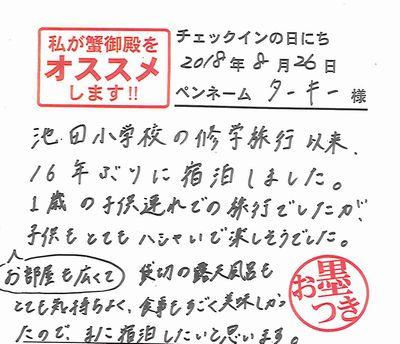 私が蟹御殿を
オススメ
します!!
チェックインの日にち
2018年8月26日
ペンネーム ターキー 様
池田小学校の修学旅行以来、
16年ぶりに宿泊しました。
1歳の子供連れでの旅行でしたが、
子供もとてもハシャいで楽しそうでした。
お部屋も広くて 貸切の露天風呂も
とても気持ちよく、食事もすごく美味しかっ
たので、また宿泊したいと思います。
お墨つき